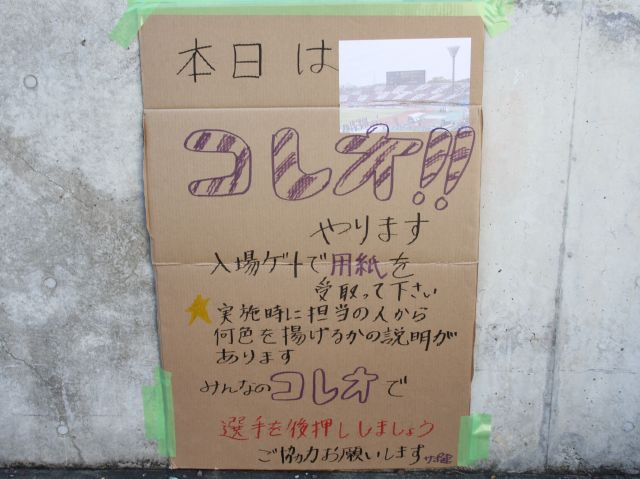 本日は
コレオ!!
やります
入場ゲートで用紙を
受取って下さい
実施時に担当の人から
何色を揚げるかの説明が
あります
みんなのコレオで
選手を後押ししましょう
ご協力お願いします